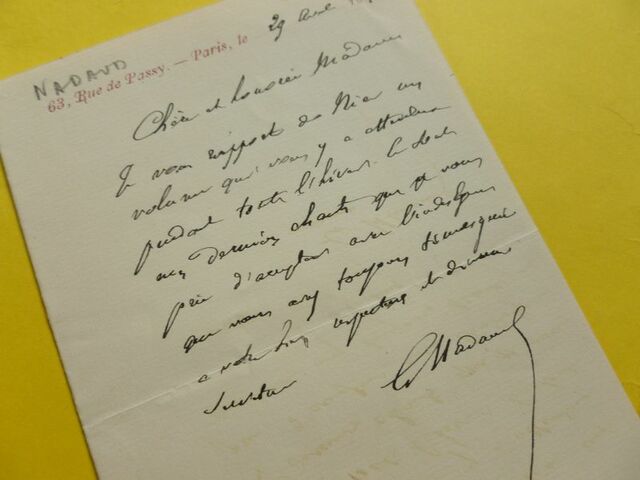 NADAUD
63, Rue de Passy. — Paris, le 29 Avril
Chère et bonne Madame
Je vous rapporte de Nice un
volume qui vous y a attendue
pendant toute l'hiver. Ce sont
mes derniers chants que je vous
prie d'accepter avec l'indulgence
que vous avez toujours témoignée
a votre bien respectueux et dévoué
serviteur
G Nadaud